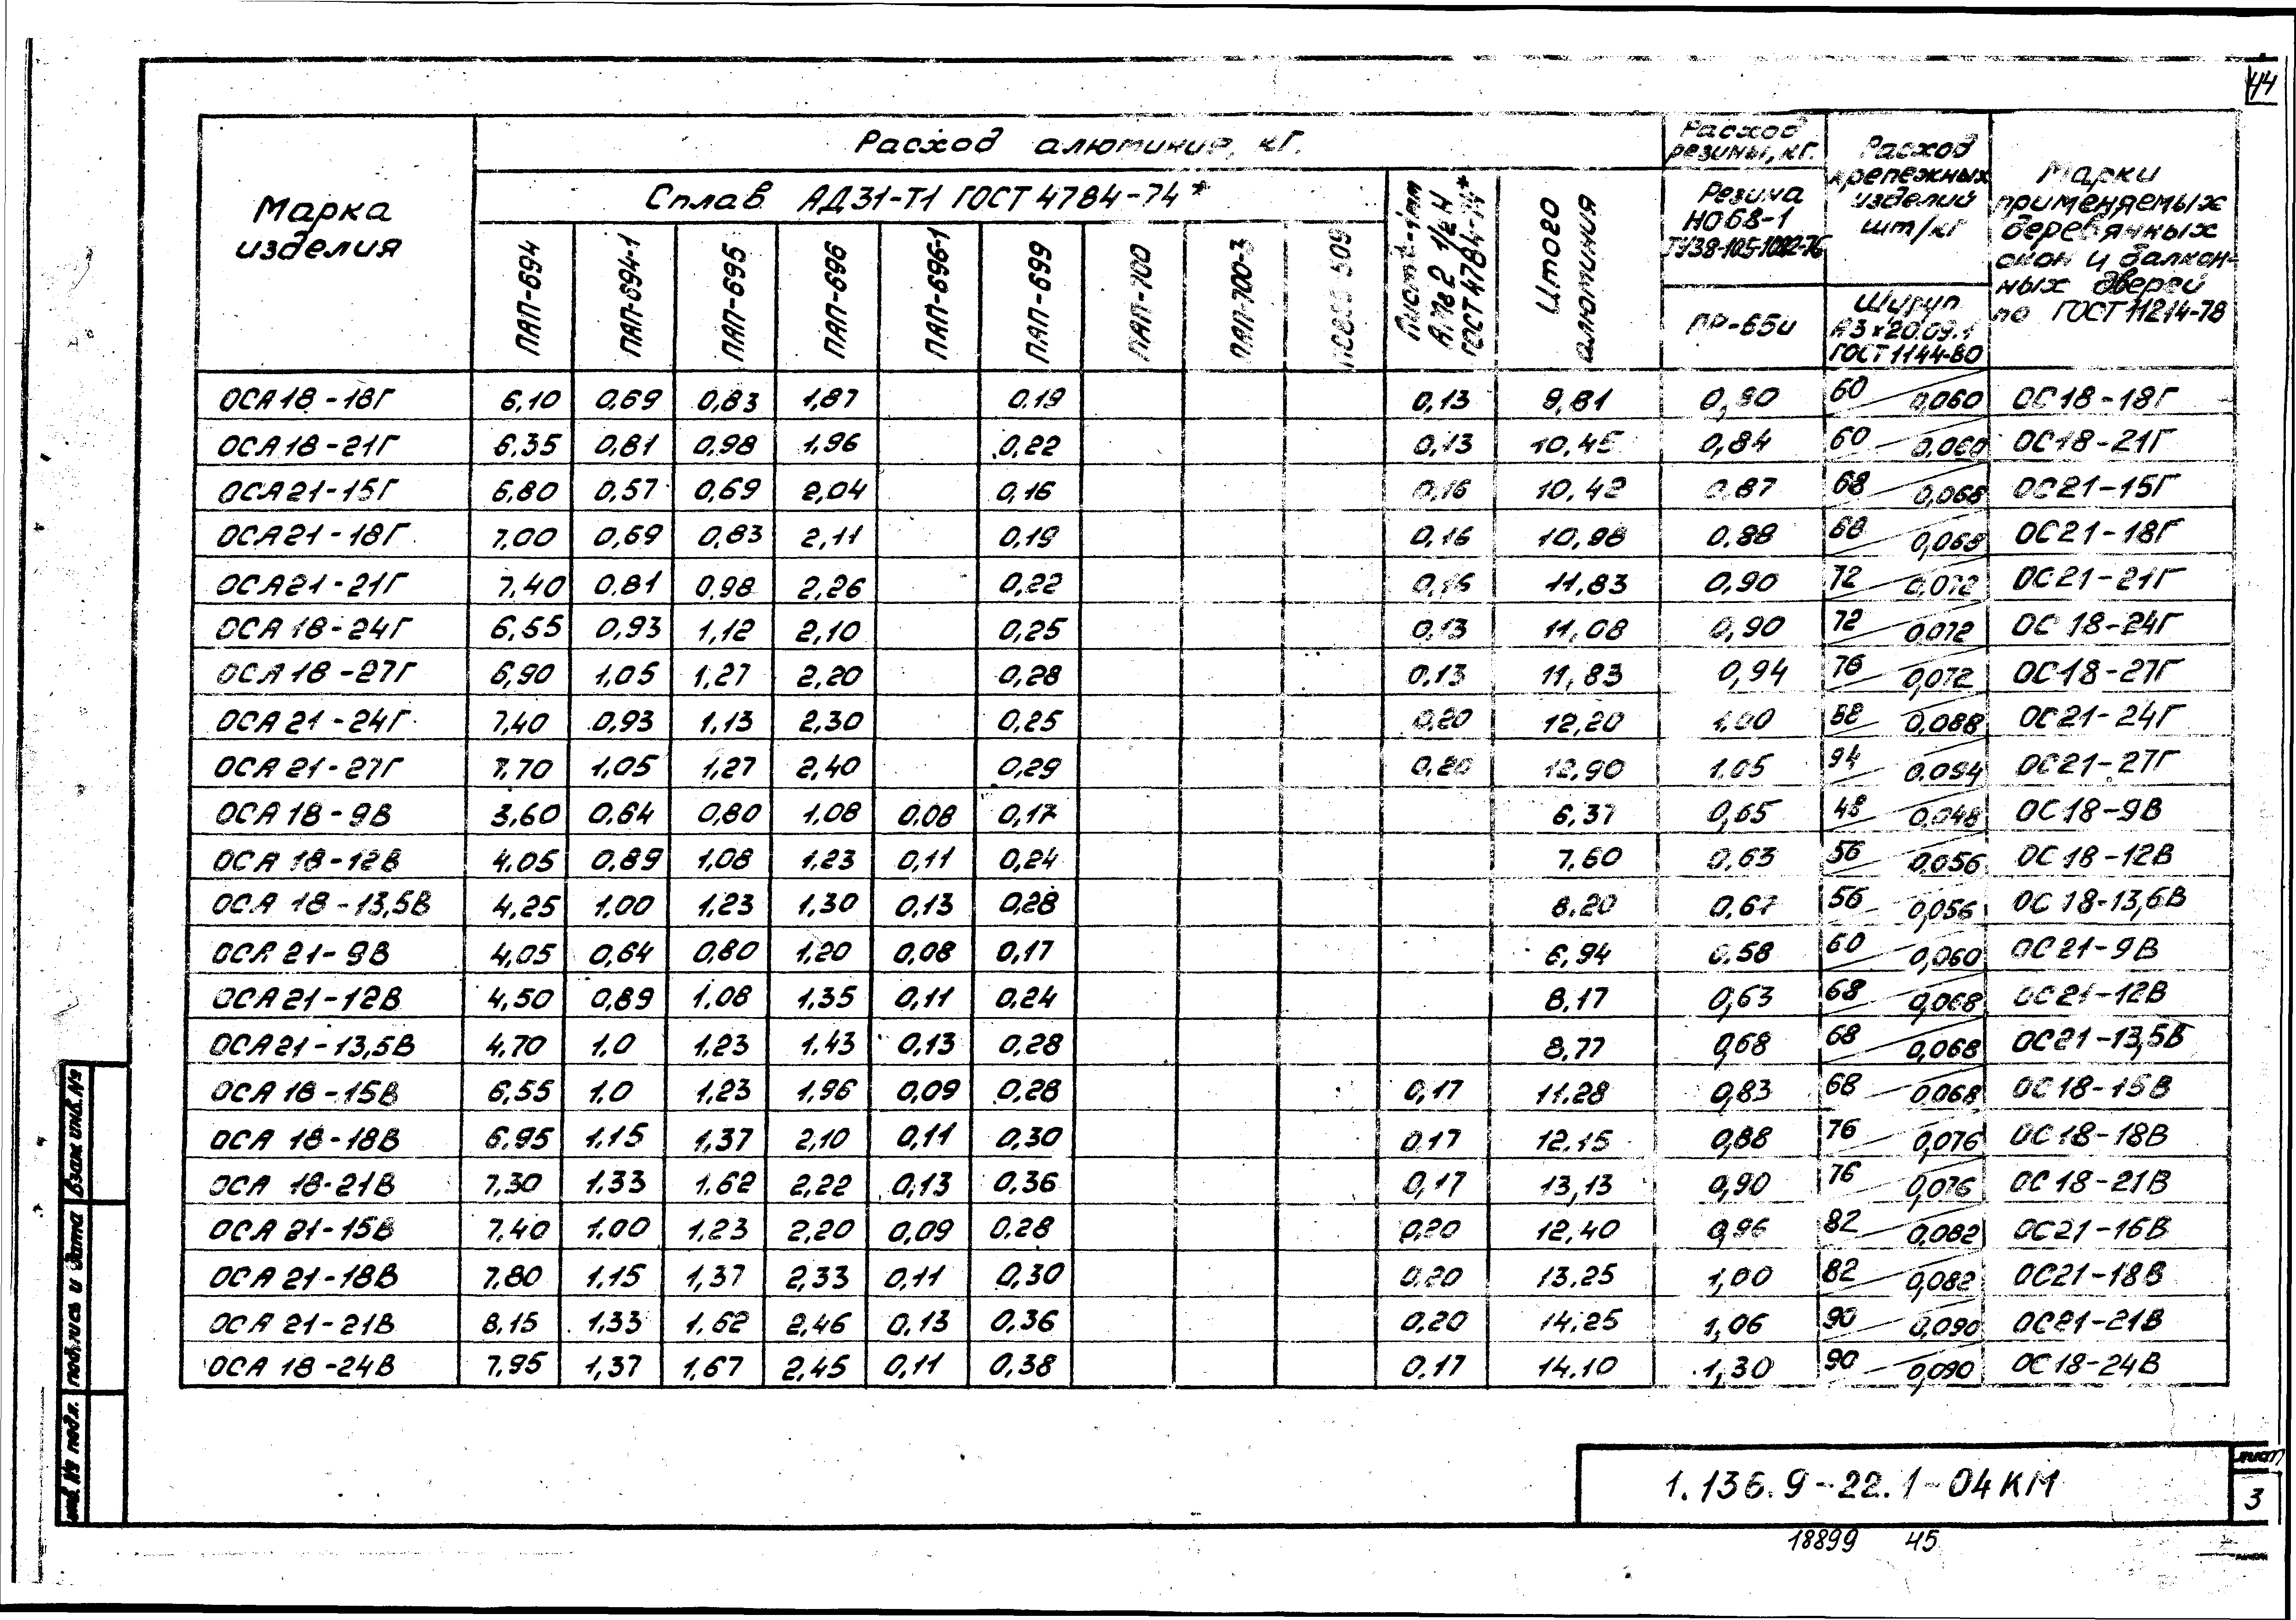 44
Марка изделия
Расход алюминия, кг.
Сплав АД31-Т1 ГОСТ 4784-74*
ПАП-694
ПАП-694-1
ПАП-695
ПАП-696
ПАП-696-1
ПАП-699
ПАП-700
ПАП-700-3
509
ГОСТ 4784-74*
Итого алюминия
Расход резины, кг.
Резина НО68-1
ТУ38-105-1082-76
ПР-65и
Расход крепежных изделий шт/кг
Шуруп А3х20.09.1 ГОСТ 1144-80
Марки применяемых деревянных окон и балконных дверей по ГОСТ 11214-78
ОСА 18-18Г 6,10 0,69 0,83 1,87 0,19 0,13 9,81 0,80 60 0,060 ОС 18-18Г
ОСА 18-21Г 6,35 0,81 0,98 1,96 0,22 0,13 10,45 0,84 60 0,060 ОС18-21Г
ОСА21-15Г 6,80 0,57 0,69 2,04 0,16 0,16 10,42 0,87 68 0,068 ОС21-15Г
ОСА21-18Г 7,00 0,69 0,83 2,11 0,19 0,16 10,98 0,88 68 0,068 ОС21-18Г
ОСА21-21Г 7,40 0,81 0,98 2,26 0,22 0,16 11,83 0,90 72 0,072 ОС21-21Г
ОСА 18-24Г 6,55 0,93 1,12 2,10 0,25 0,13 11,08 0,90 72 0,072 ОС 18-24Г
ОСА 18-27Г 6,90 1,05 1,27 2,20 0,28 0,13 11,83 0,94 76 0,072 ОС18-27Г
ОСА 21-24Г 7,40 0,93 1,13 2,30 0,25 0,20 12,20 1,00 88 0,088 ОС21-24Г
ОСА 21-27Г 7,70 1,05 1,27 2,40 0,29 0,20 12,90 1,05 94 0,094 ОС21-27Г
ОСА 18-9В 3,60 0,64 0,80 1,08 0,08 0,17 6,37 0,65 48 0,048 ОС 18-9В
ОСА 18-12В 4,05 0,89 1,08 1,23 0,11 0,24 7,60 0,63 56 0,056 ОС 18-12В
ОСА 18-13,5В 4,25 1,00 1,23 1,30 0,13 0,28 8,20 0,67 56 0,056 ОС 18-13,6В
ОСА 21-9В 4,05 0,64 0,80 1,20 0,08 0,17 6,94 0,58 60 0,060 ОС21-9В
ОСА21-12В 4,50 0,89 1,08 1,35 0,11 0,24 8,17 0,63 68 0,068 ОС21-12В
ОСА21-13,5В 4,70 1,0 1,23 1,43 0,13 0,28 8,77 0,68 68 0,068 ОС21-13,5В
ОСА 18-15В 6,55 1,0 1,23 1,96 0,09 0,28 0,17 11,28 0,83 68 0,068 ОС18-15В
ОСА 18-18В 6,95 1,15 1,37 2,10 0,11 0,30 0,17 12,15 0,88 76 0,076 ОС18-18В
ОСА 18-21В 7,30 1,33 1,62 2,22 0,13 0,36 0,17 13,13 0,90 76 0,076 ОС 18-21В
ОСА 21-15В 7,40 1,00 1,23 2,20 0,09 0,28 0,20 12,40 0,96 82 0,082 ОС21-16В
ОСА 21-18В 7,80 1,15 1,37 2,33 0,11 0,30 0,20 13,25 1,00 82 0,082 ОС21-18В
ОСА 21-21В 8,15 1,33 1,62 2,46 0,13 0,36 0,20 14,25 1,06 90 0,090 ОС21-21В
ОСА 18-24В 7,95 1,37 1,67 2,45 0,11 0,38 0,17 14,10 1,30 90 0,090 ОС18-24В
Взам инв. №
подпись и дата
инв. № подл.
1.136.9-22.1-04КМ
лист
3
18899 45